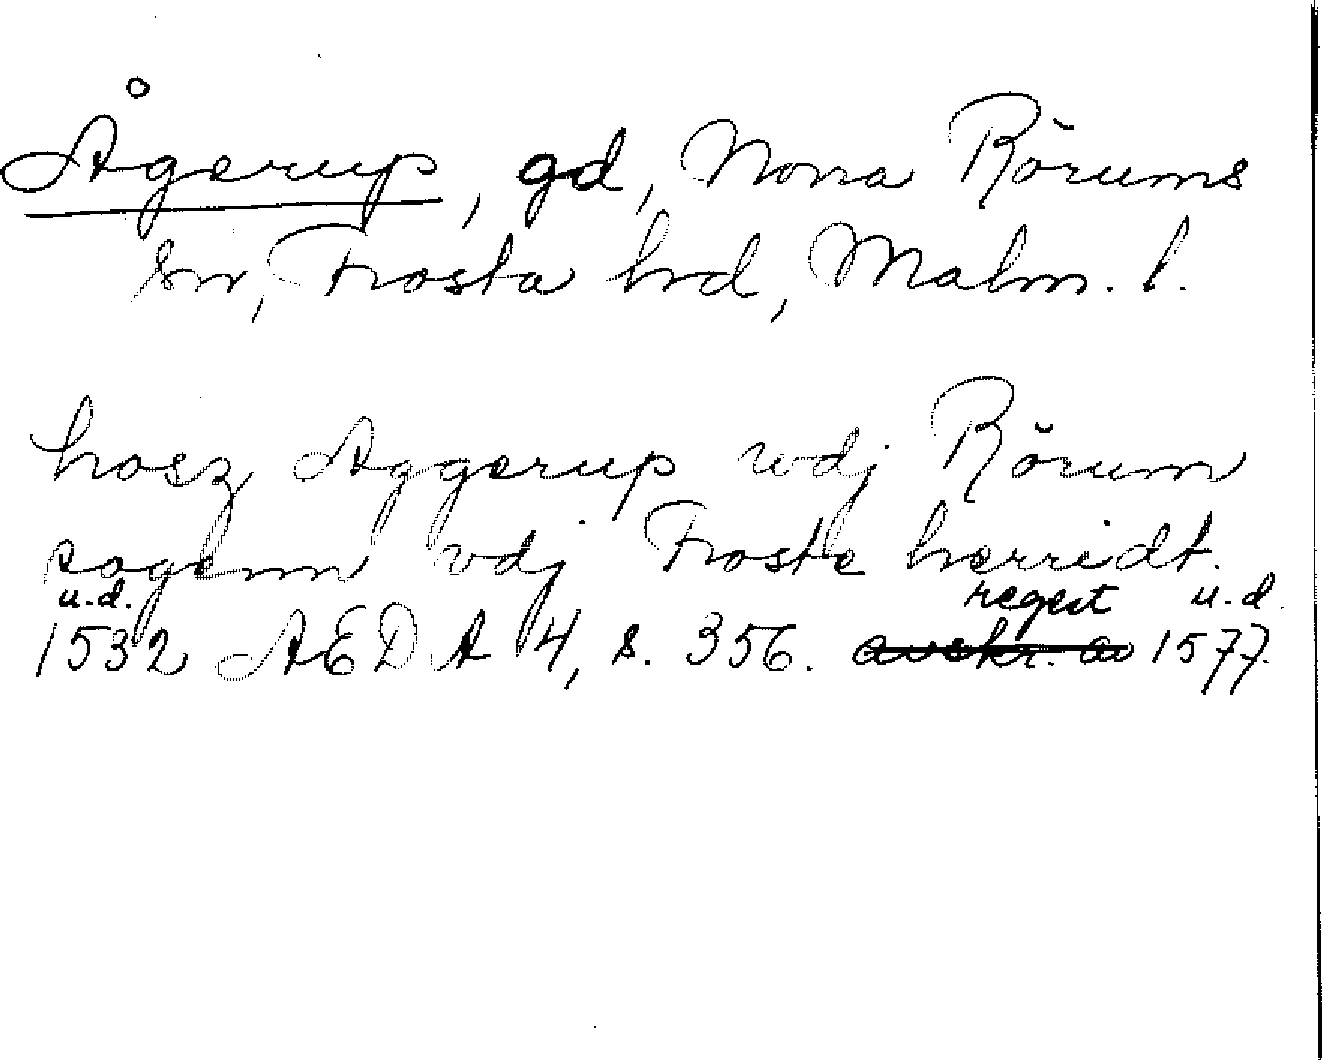 Ågerup, gd, Norra Rörums
sn, Frosta hrd, Malm. l.
hosz Aggerup wdj Rörum
sogenn vdj Froste herridt.
u.d. regest u.d.
1532 AEDA 4, s. 356. avskr. av 1577.